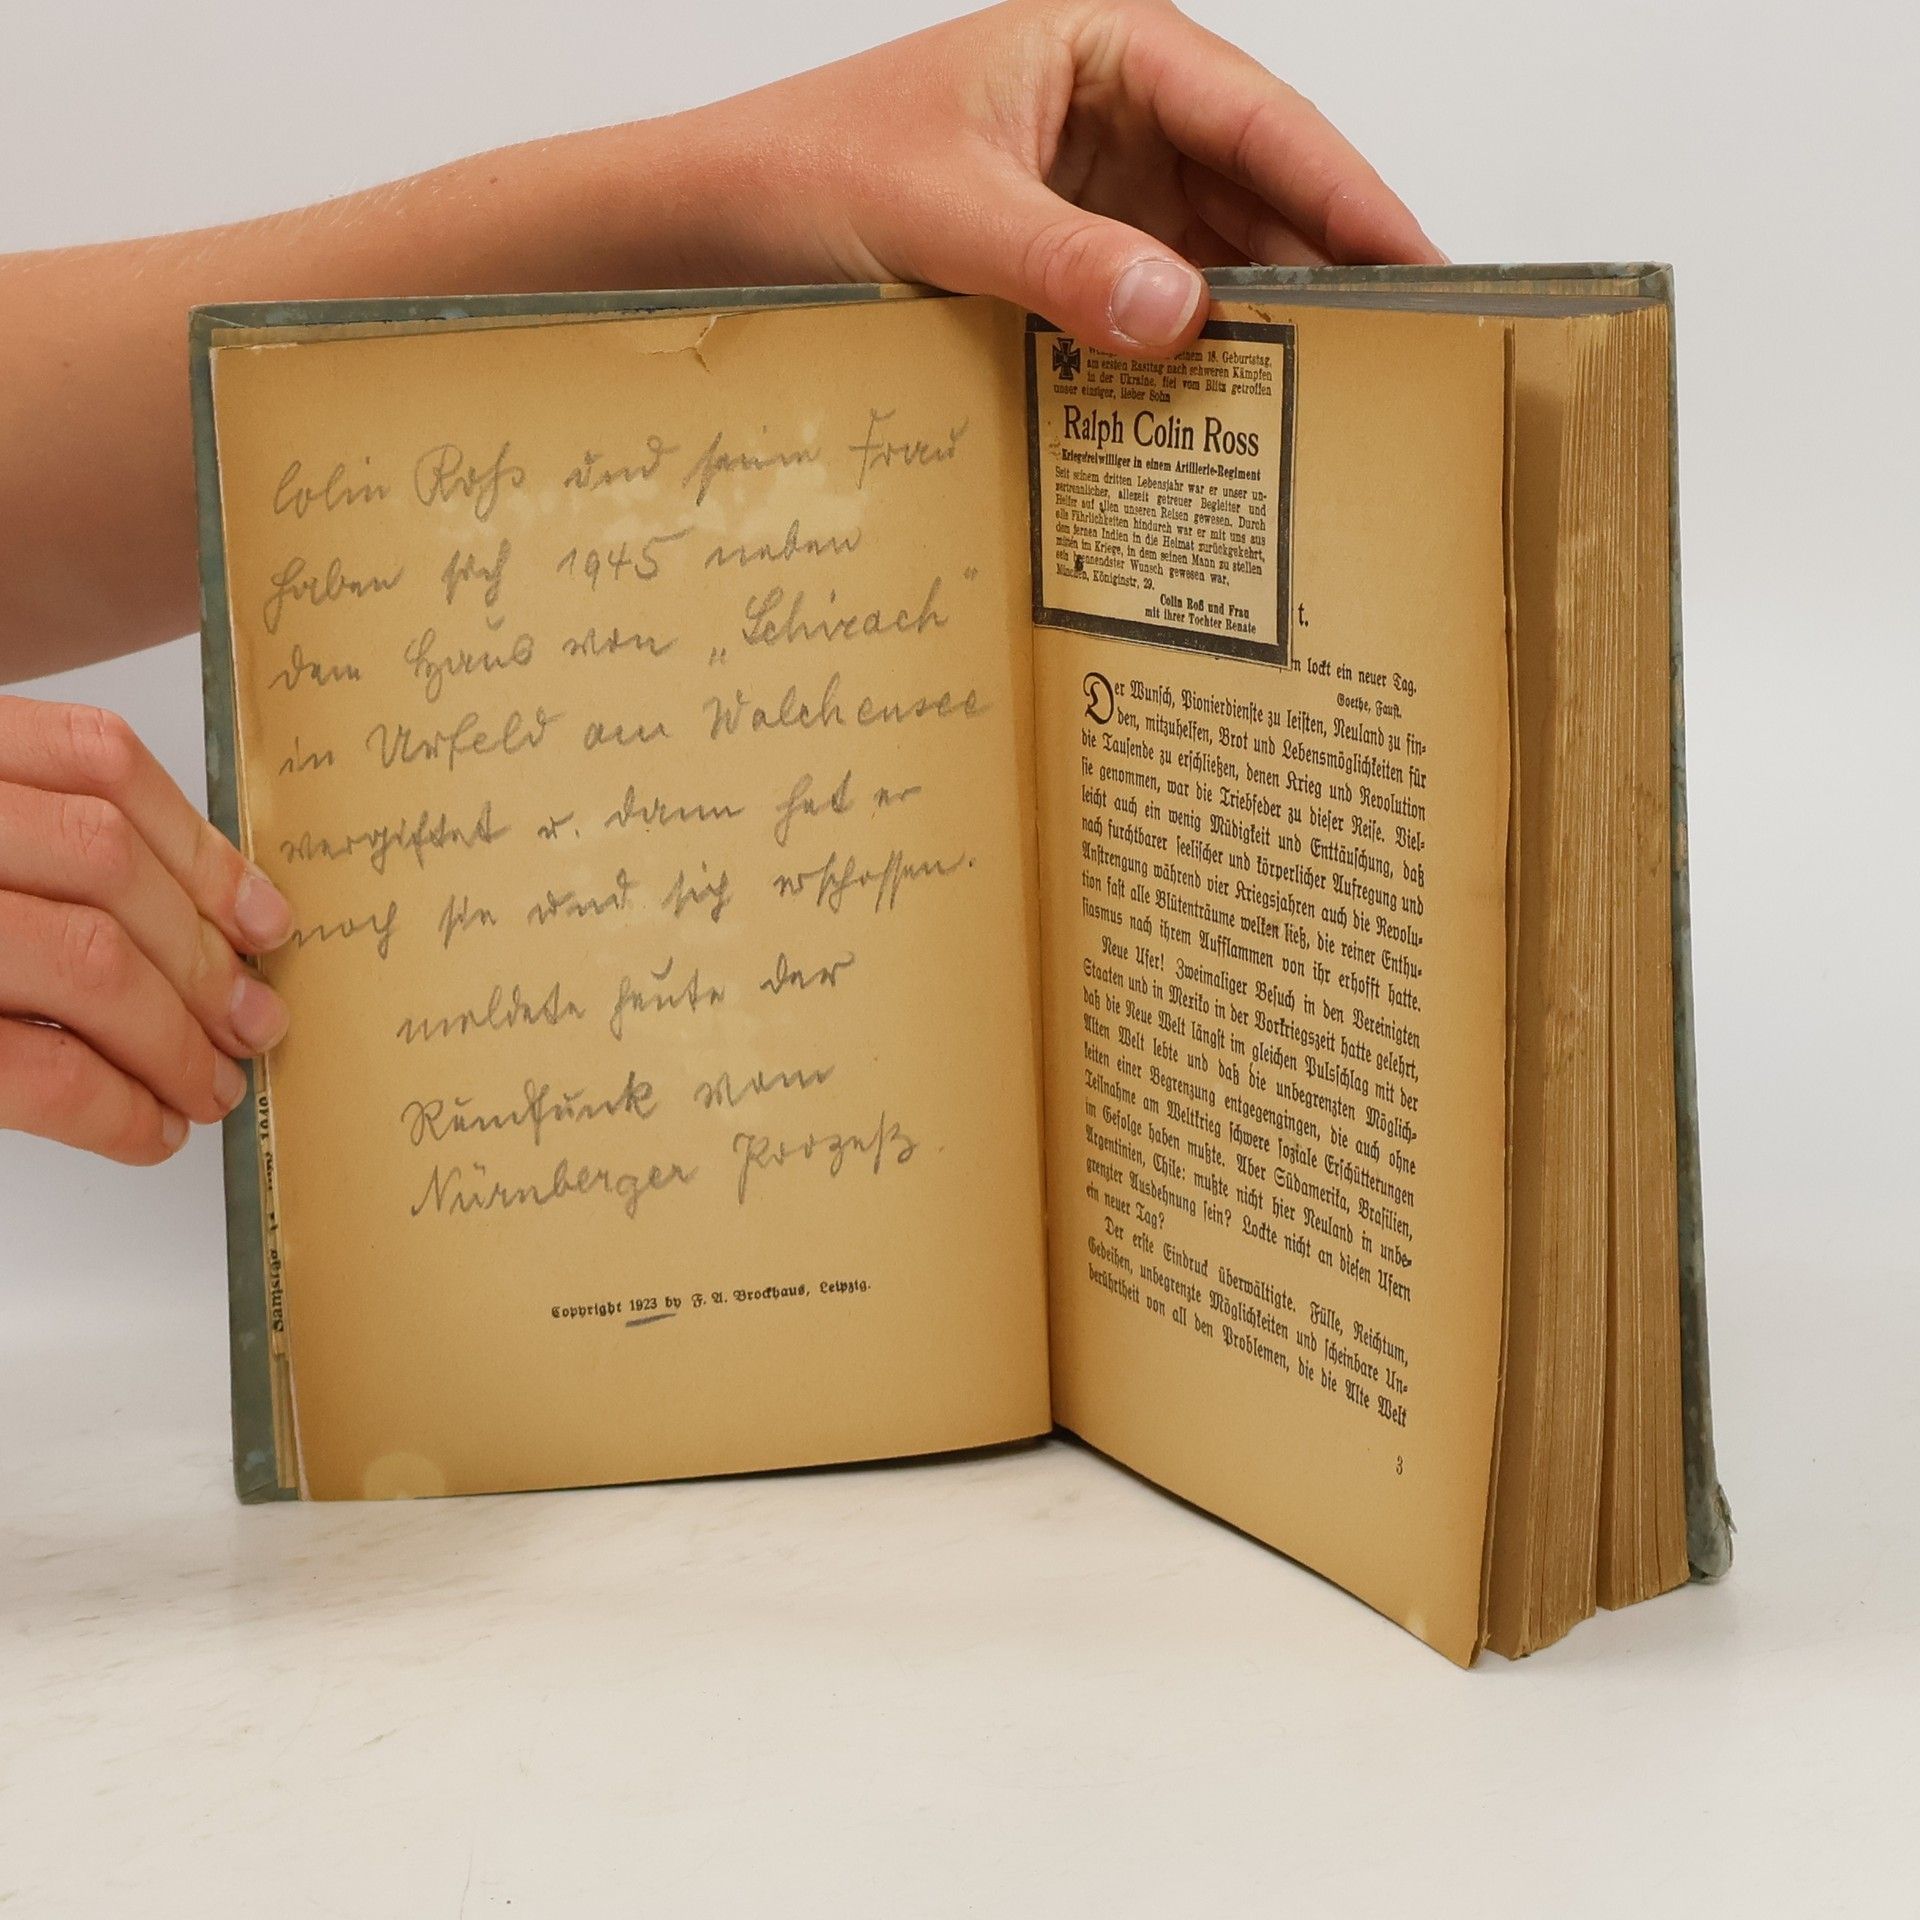 Colin Roß und seine Frau
haben sich 1945 neben
dem Haus von „Schirach"
in Urfeld am Walchensee
vergiftet u. dann hat er
noch sie und sich erschossen.
meldete heute der
Rundfunk vom
Nürnberger Prozeß.
Copyright 1923 by F. A. Brockhaus, Leipzig.
Samstag
seinem 18. Geburtstag,
am ersten Rasttag nach schweren Kämpfen
in der Ukraine, fiel vom Blitz getroffen
unser einziger, lieber Sohn
Ralph Colin Ross
Kriegsfreiwilliger in einem Artillerie-Regiment
Seit seinem dritten Lebensjahr war er unser un-
zertrennlicher, allezeit getreuer Begleiter und
Helfer auf allen unseren Reisen gewesen. Durch
alle Fährlichkeiten hindurch war er mit uns aus
dem fernen Indien in die Heimat zurückgekehrt,
mitten im Kriege, in dem seinen Mann zu stellen
sein brennendster Wunsch gewesen war.
München, Königinstr. 29.
Colin Roß und Frau
mit ihrer Tochter Renate
t.
lockt ein neuer Tag.
Goethe, Faust.
Der Wunsch, Pionierdienste zu leisten, Neuland zu fin-
den, mitzuhelfen, Brot und Lebensmöglichkeiten für
die Tausende zu erschließen, denen Krieg und Revolution
sie genommen, war die Triebfeder zu dieser Reise. Viel-
leicht auch ein wenig Müdigkeit und Enttäuschung, daß
nach furchtbarer seelischer und körperlicher Aufregung und
Anstrengung während vier Kriegsjahren auch die Revolu-
tion fast alle Blütenträume welken ließ, die reiner Enthu-
siasmus nach ihrem Aufflammen von ihr erhofft hatte.
Neue Ufer! Zweimaliger Besuch in den Vereinigten
Staaten und in Mexiko in der Vorkriegszeit hatte gelehrt,
daß die Neue Welt längst im gleichen Pulsschlag mit der
Alten Welt lebte und daß die unbegrenzten Möglich-
keiten einer Begrenzung entgegengingen, die auch ohne
Teilnahme am Weltkrieg schwere soziale Erschütterungen
im Gefolge haben mußte. Aber Südamerika, Brasilien,
Argentinien, Chile: mußte nicht hier Neuland in unbe-
grenzter Ausdehnung sein? Lockte nicht an diesen Ufern
ein neuer Tag?
Der erste Eindruck überwältigte. Fülle, Reichtum,
Gedeihen, unbegrenzte Möglichkeiten und scheinbare Un-
berührtheit von all den Problemen, die die Alte Welt
3